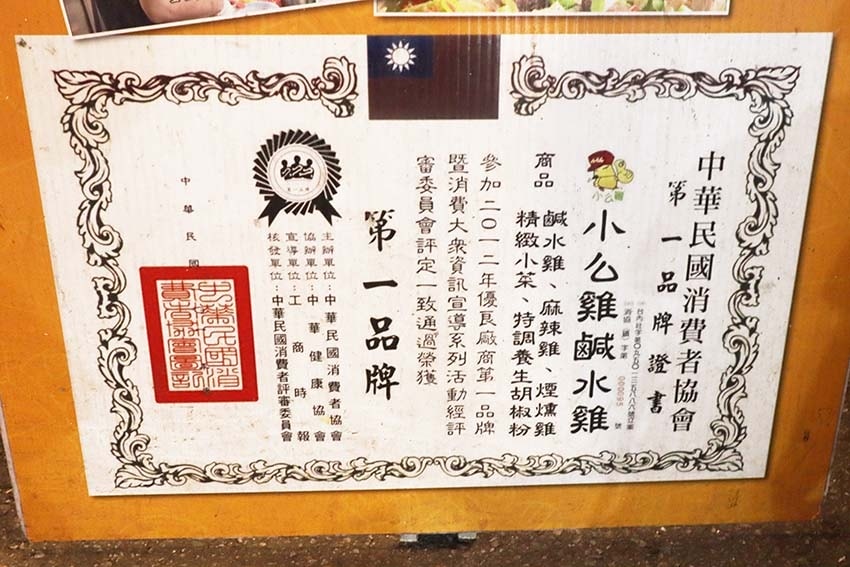 中華民國消費者協會
第一品牌證書
小么雞鹹水雞
商品 鹹水雞、麻辣雞、煙燻雞
精緻小菜、特調養生胡椒粉
參加二〇一二年優良廠商第一品牌
暨消費大衆資訊宣導系列活動經評
審委員會評定一致通過榮獲
第一品牌
主辦單位:中華民國消費者協會
協辦單位:中華健康協會
宣導單位:工商時報
核發單位:中華民國消費者評審委員會
中華民國